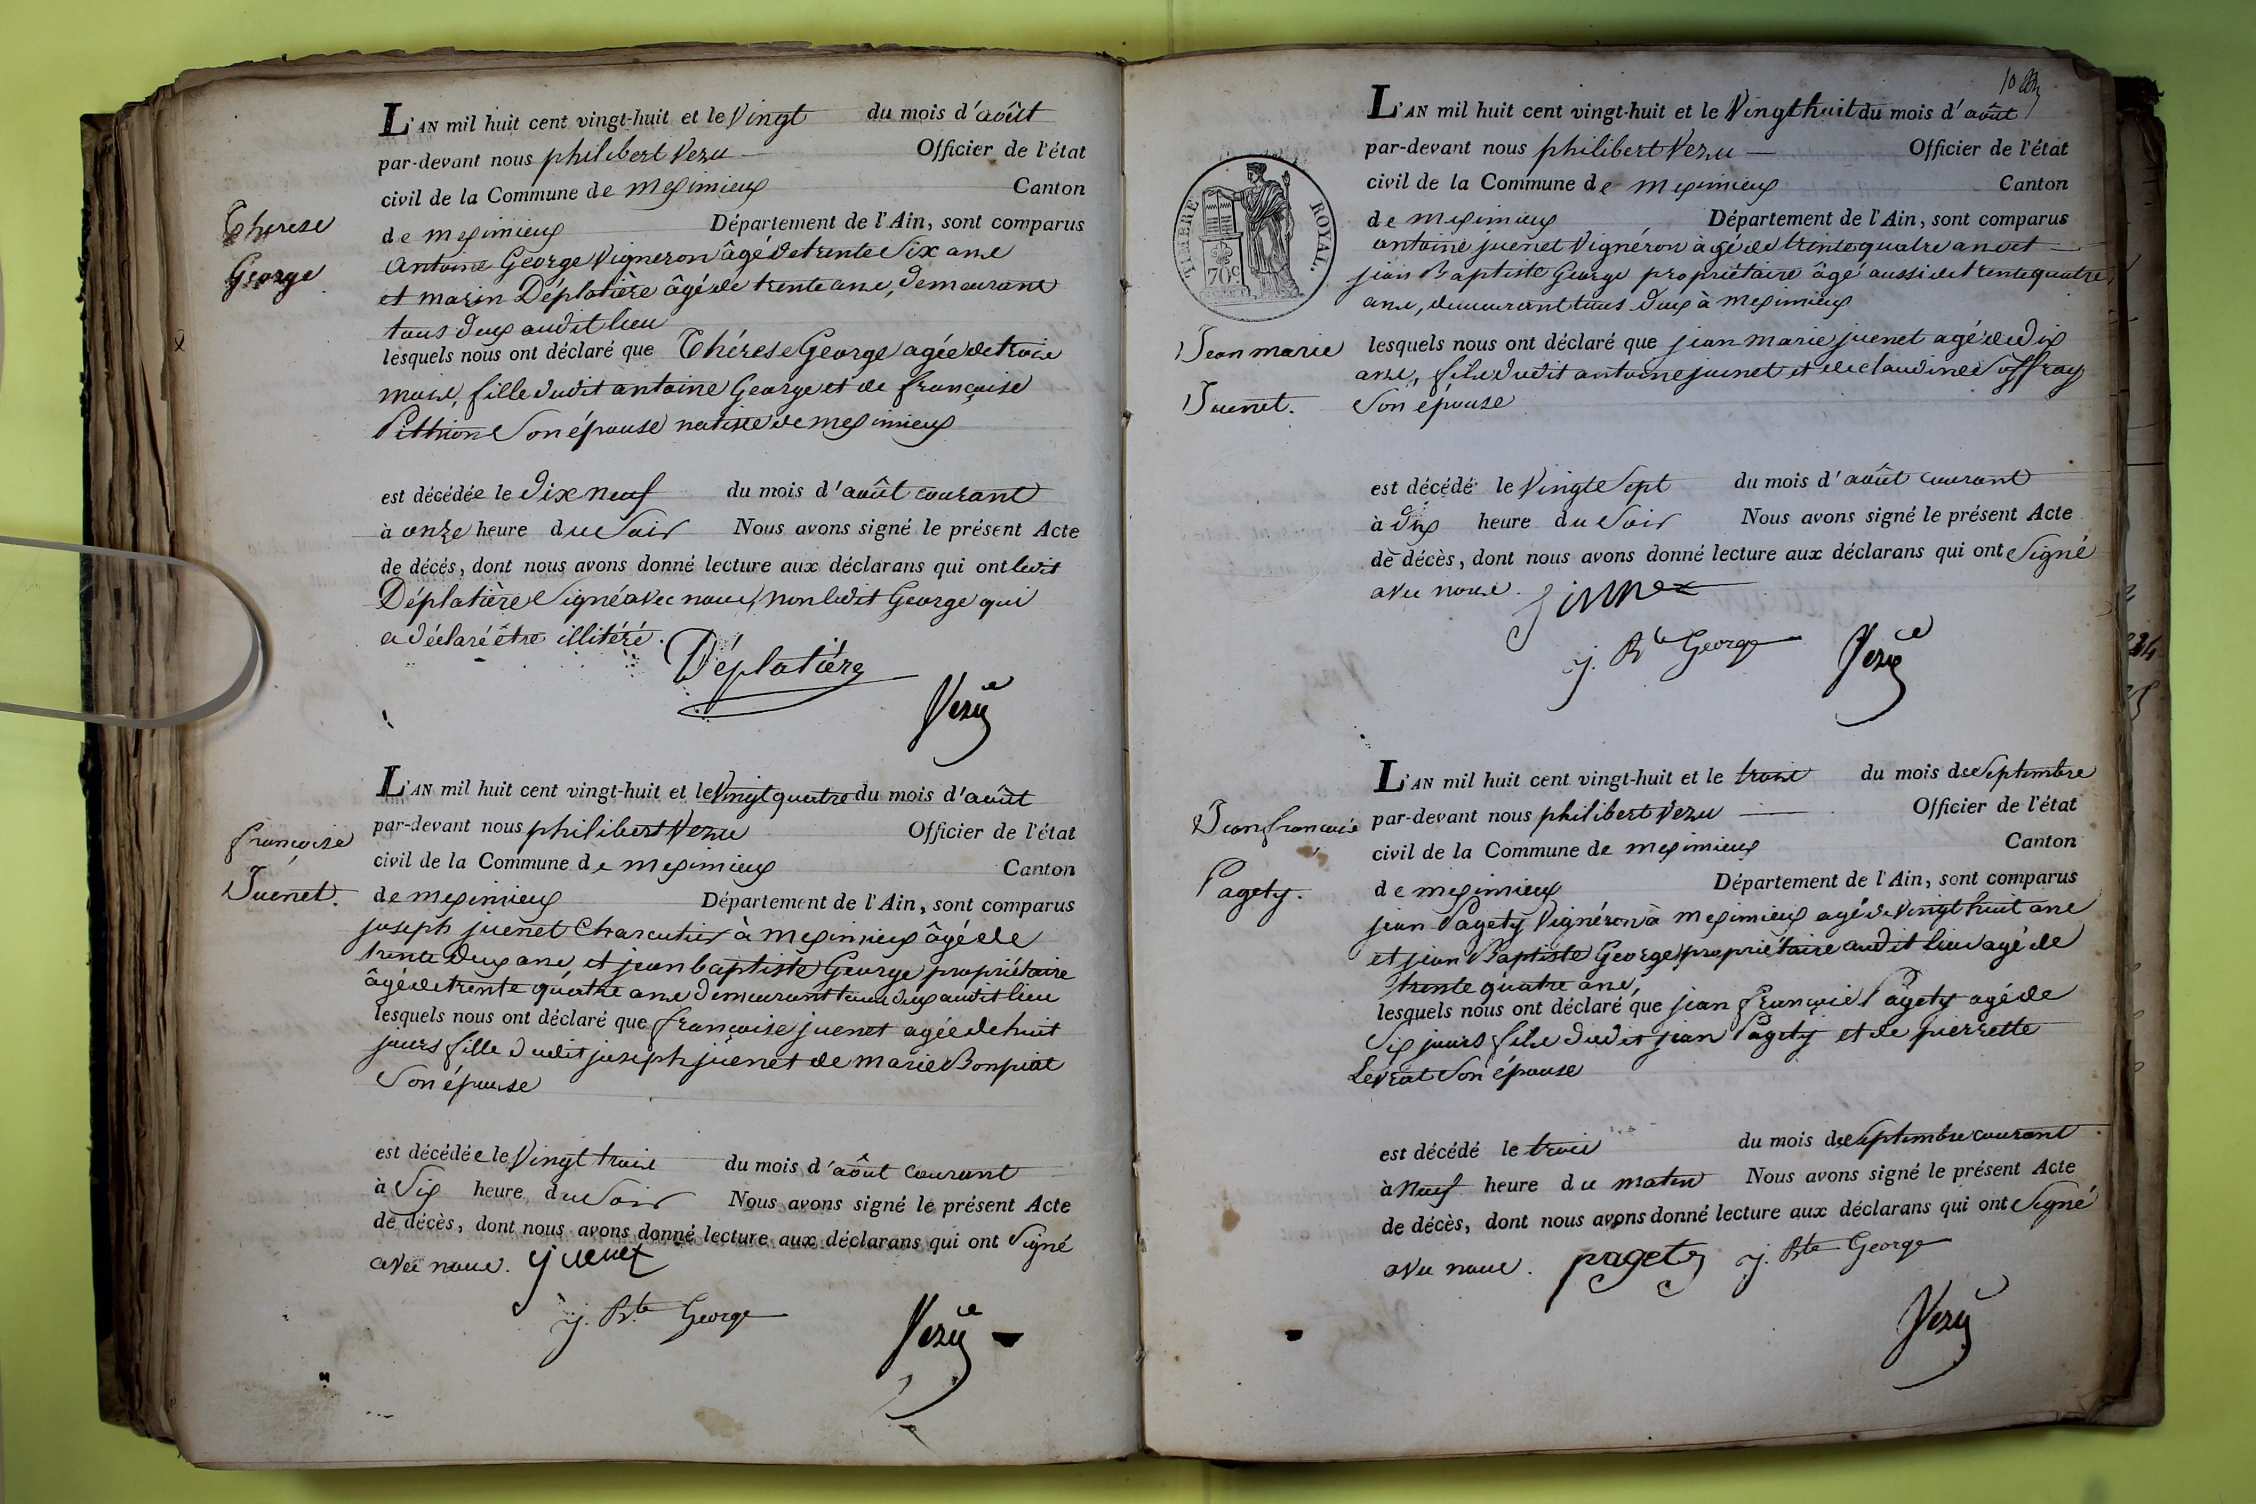 L'AN mil huit cent vingt-huit et le Vingt du mois d'août
par-devant nous philibert Vezu Officier de l'état
civil de la Commune de meximieux Canton
de meximieux Département de l'Ain, sont comparus
Antoine George Vigneron âgé de trente Six ans
et marin Déplatière âgé de trente ans, demeurant
tous deux audit lieu
Thérèse
George
lesquels nous ont déclaré que Thérèse George agée de trois
mois, fille dudit antoine George et de françoise
Pithion Son épouse native de meximieux
est décédée le dix neuf du mois d'août courant
à onze heure du Soir Nous avons signé le présent Acte
de décés, dont nous avons donné lecture aux déclarans qui ont ledit
Déplatière Signé avec nous, non ledit George qui
a déclaré être illitéré.
Déplatière
Vezu
L'AN mil huit cent vingt-huit et le Vingt quatre du mois d'août
par-devant nous philibert Vezu Officier de l'état
civil de la Commune de meximieux Canton
de meximieux Département de l'Ain, sont comparus
françoise
Juenet.
joseph juenet Charcutier à meximieux âgé de
trente deux ans, et jean baptiste George propriétaire
âgé de trente quatre ans demeurant tous deux audit lieu
lesquels nous ont déclaré que françoise juenet agée de huit
jours fille dudit joseph juenet de marie Bonpiat
Son épouse
est décédée le Vingt trois du mois d'août courant
à Six heure du Soir Nous avons signé le présent Acte
de décès, dont nous avons donné lecture aux déclarans qui ont Signé
avec nous. juenet
j. Bte George
Vezu
L'AN mil huit cent vingt-huit et le Vingt huit du mois d'août
par-devant nous philibert Vezu Officier de l'état
civil de la Commune de meximieux Canton
de meximieux Département de l'Ain, sont comparus
TIMBRE ROYAL.
70c
antoine juenet Vignéron âgé de trente quatre ans et
jean Baptiste George propriétaire âgé aussi de trente quatre
ans, demeurant tous deux à meximieux
Jean marie
Juenet.
lesquels nous ont déclaré que jean marie juenet agé de dix
ans, fils dudit antoine juenet et de claudine Soffray
Son épouse
est décédé le Vingt Sept du mois d'août courant
à dix heure du Soir Nous avons signé le présent Acte
de décès, dont nous avons donné lecture aux déclarans qui ont Signé
avec nous.
j. Bte George
Vezu
L'AN mil huit cent vingt-huit et le trois du mois de Septembre
par-devant nous philibert Vezu Officier de l'état
civil de la Commune de meximieux Canton
de meximieux Département de l'Ain, sont comparus
Jean françois
Pagety.
jean Pagety Vignéron à meximieux agé de Vingt huit ans
et jean Baptiste George propriétaire audit lieu agé de
trente quatre ans,
lesquels nous ont déclaré que jean françois Pagety agé de
Six jours fils dudit jean Pagety et de pierrette
Levrat Son épouse
est décédé le trois du mois de Septembre courant
à neuf heure du matin Nous avons signé le présent Acte
de décès, dont nous avons donné lecture aux déclarans qui ont Signé
avec nous. pagety j. Bte George
Vezu